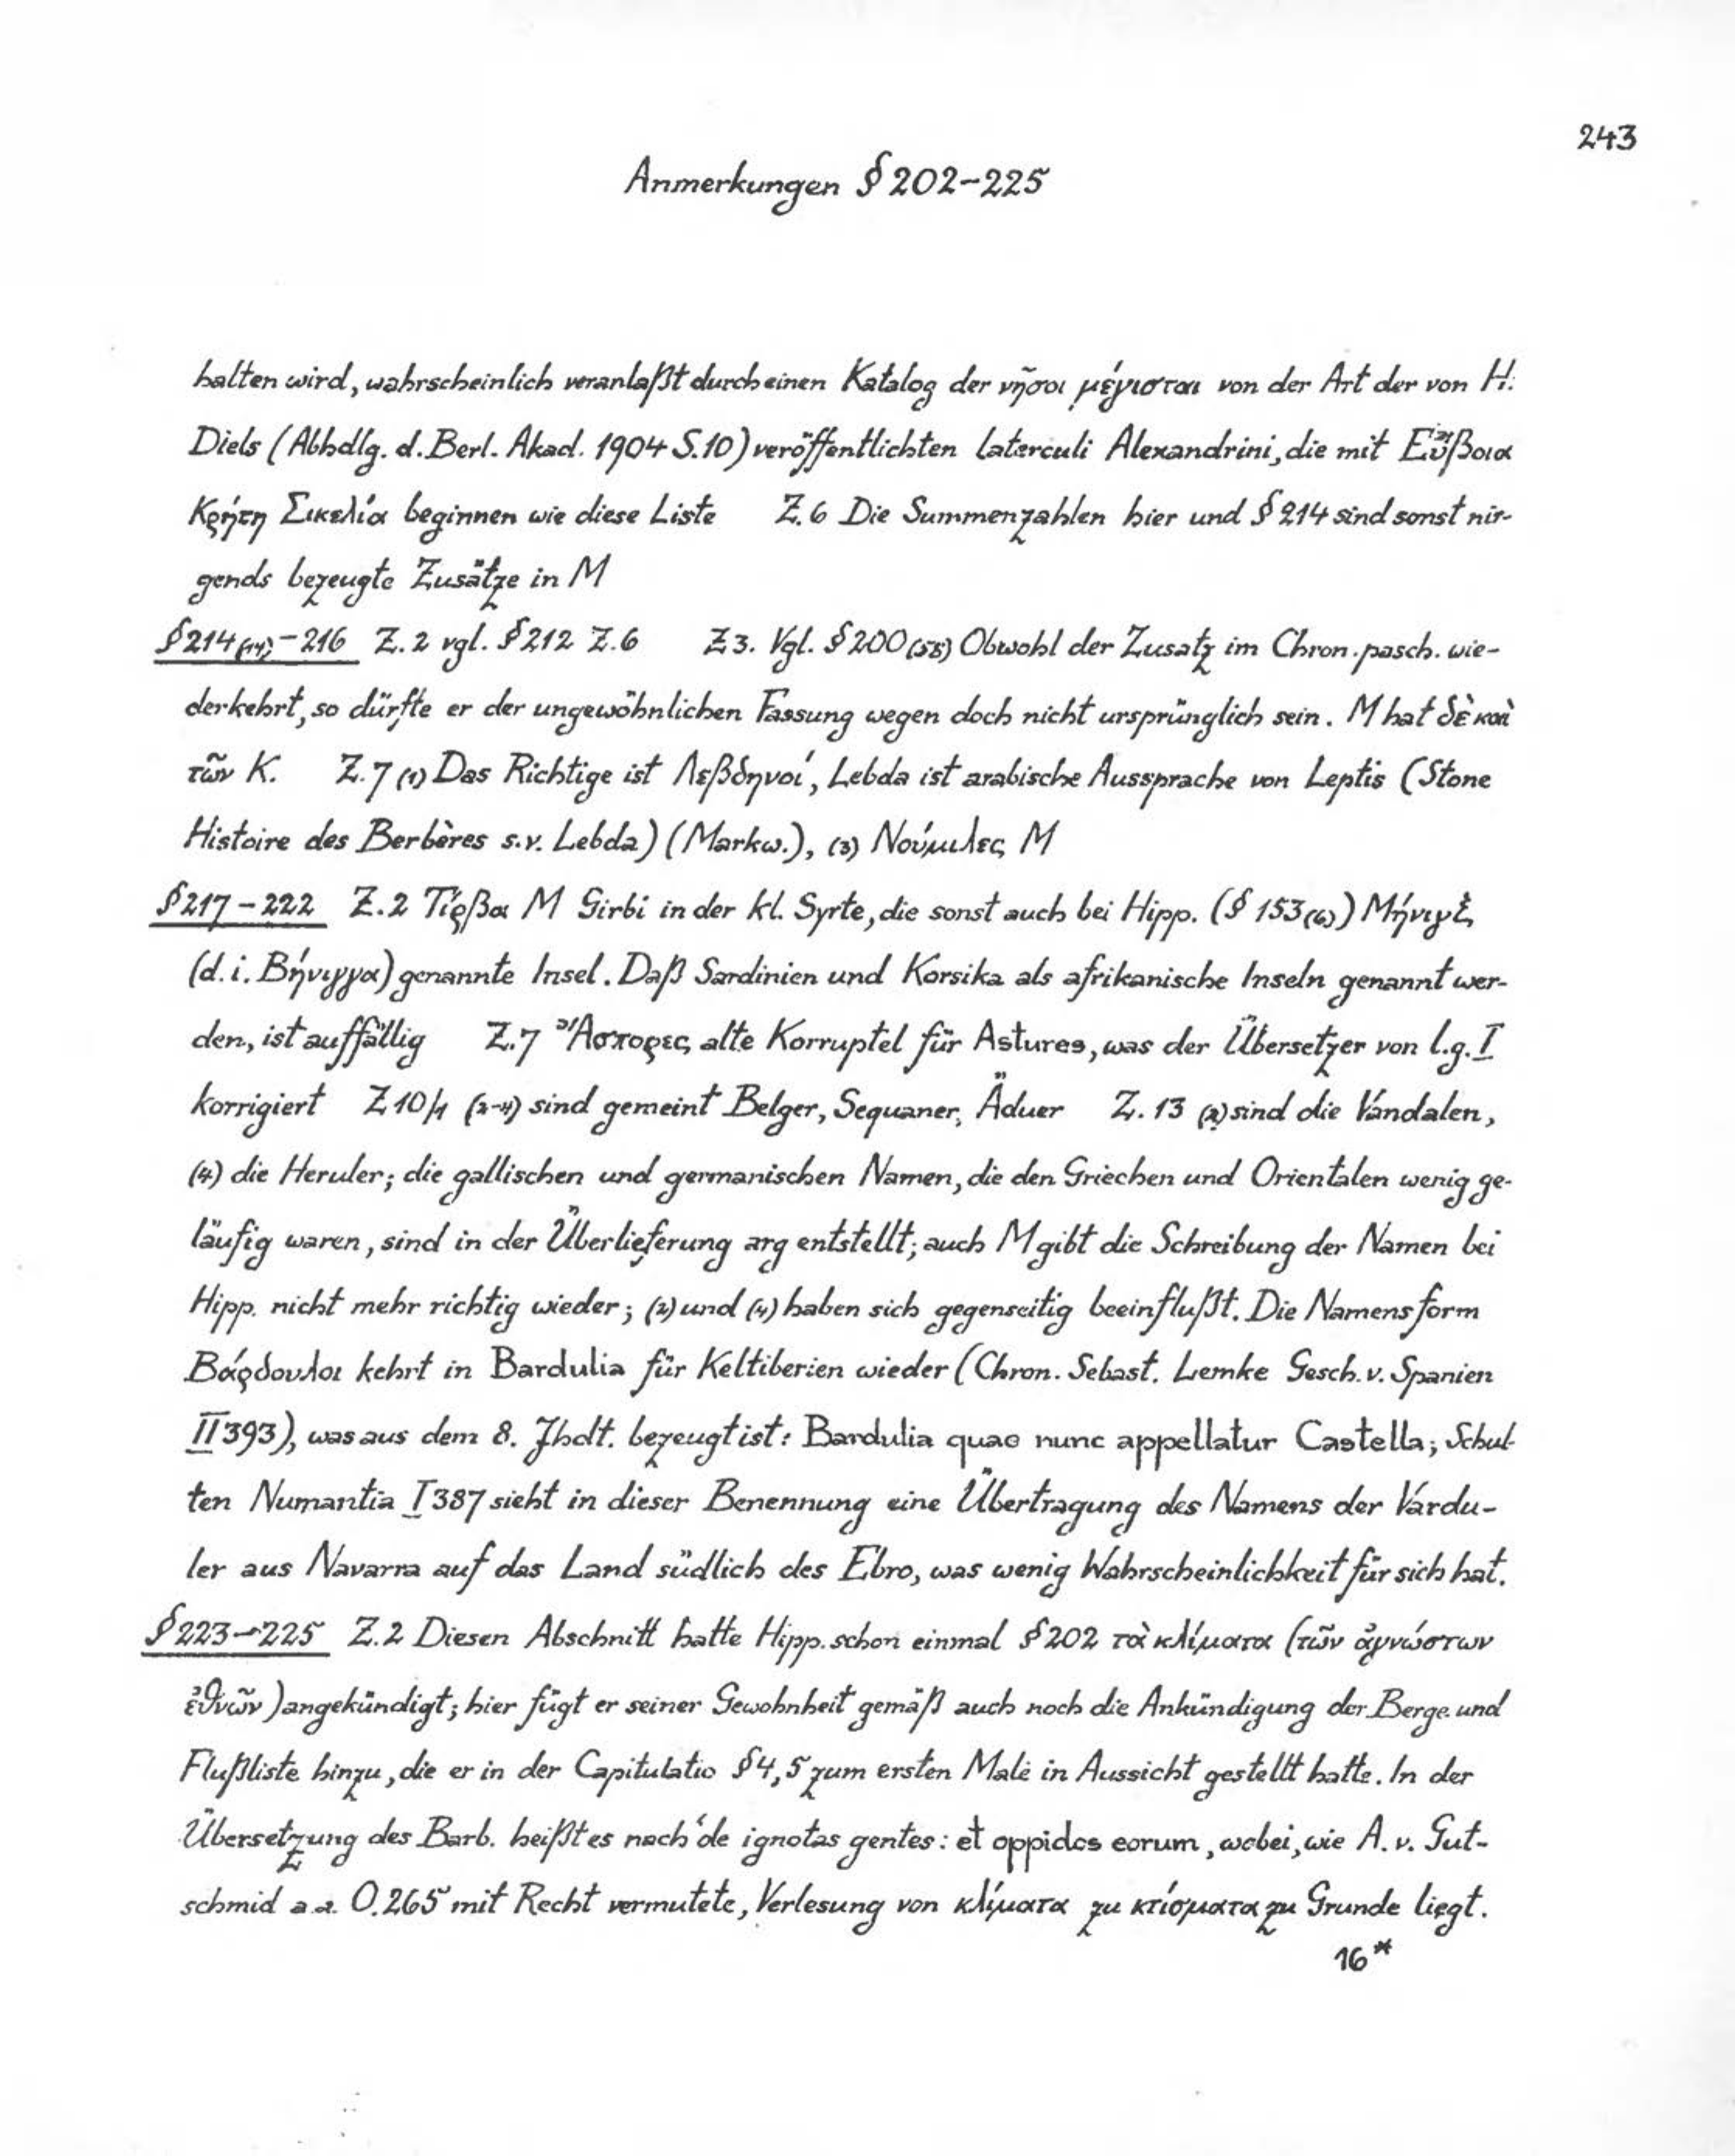 243
Anmerkungen § 202-225
halten wird, wahrscheinlich veranlaßt durch einen Katalog der νῆσοι μέγισται von der Art der von H.
Diels (Abhdlg. d. Berl. Akad. 1904 S.10) veröffentlichten laterculi Alexandrini, die mit Εὔβοια
Κρήτη Σικελία beginnen wie diese Liste Z. 6 Die Summenzahlen hier und § 214 sind sonst nir-
gends bezeugte Zusätze in M
§ 214 (14) - 216 Z. 2 vgl. § 212 Z. 6 Z 3. Vgl. § 200 (58) Obwohl der Zusatz im Chron. pasch. wie-
derkehrt, so dürfte er der ungewöhnlichen Fassung wegen doch nicht ursprünglich sein. M hat δὲ καὶ
τῶν K. Z. 7 (1) Das Richtige ist Λεβδηνοί, Lebda ist arabische Aussprache von Leptis (Stone
Histoire des Berbères s.v. Lebda) (Markw.), (3) Νούμιλες M
§ 217 - 222 Z. 2 Τίρβα M Girbi in der kl. Syrte, die sonst auch bei Hipp. (§ 153 (6)) Μῆνιγξ
(d. i. Βήνιγγα) genannte Insel. Daß Sardinien und Korsika als afrikanische Inseln genannt wer-
den, ist auffällig Z. 7 Ἄστορες alte Korruptel für Astures, was der Übersetzer von l.g. I
korrigiert Z 10/1 (2-4) sind gemeint Belger, Sequaner, Äduer Z. 13 (2) sind die Vandalen,
(4) die Heruler; die gallischen und germanischen Namen, die den Griechen und Orientalen wenig ge-
läufig waren, sind in der Überlieferung arg entstellt; auch M gibt die Schreibung der Namen bei
Hipp. nicht mehr richtig wieder; (2) und (4) haben sich gegenseitig beeinflußt. Die Namensform
Βάρδουλοι kehrt in Bardulia für Keltiberien wieder (Chron. Sebast. Lemke Gesch. v. Spanien
II 393), was aus dem 8. Jhdt. bezeugt ist: Bardulia quae nunc appellatur Castella; Schul-
ten Numantia I 387 sieht in dieser Benennung eine Übertragung des Namens der Vardu-
ler aus Navarra auf das Land südlich des Ebro, was wenig Wahrscheinlichkeit für sich hat.
§ 223-225 Z. 2 Diesen Abschnitt hatte Hipp. schon einmal § 202 τὰ κλίματα (τῶν ἀγνώστων
ἐθνῶν) angekündigt; hier fügt er seiner Gewohnheit gemäß auch noch die Ankündigung der Berge und
Flußliste hinzu, die er in der Capitulatio § 4, 5 zum ersten Male in Aussicht gestellt hatte. In der
Übersetzung des Barb. heißt es nach de ignotas gentes: et oppidos eorum, wobei, wie A. v. Gut-
schmid a. a. O. 265 mit Recht vermutete, Verlesung von κλίματα zu κτίσματα zu Grunde liegt.
16*